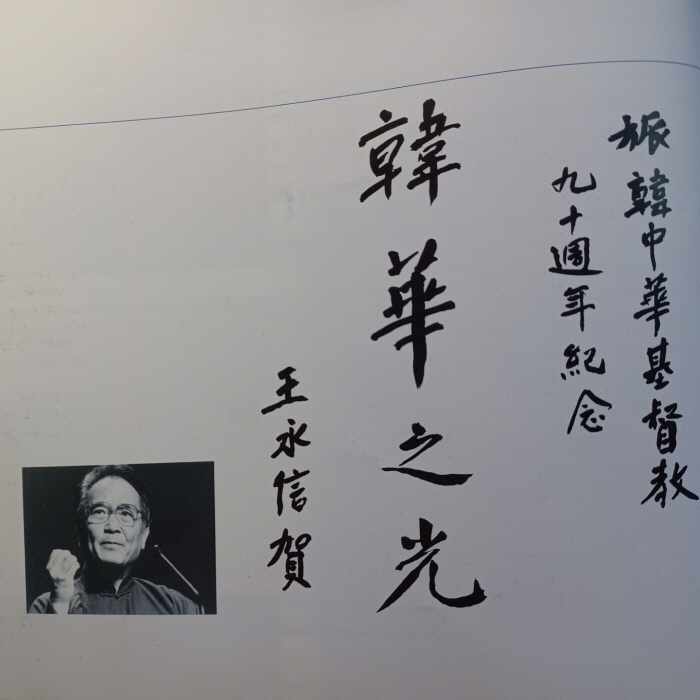 旅韓中華基督教
九十週年紀念
韓華之光
王永信賀